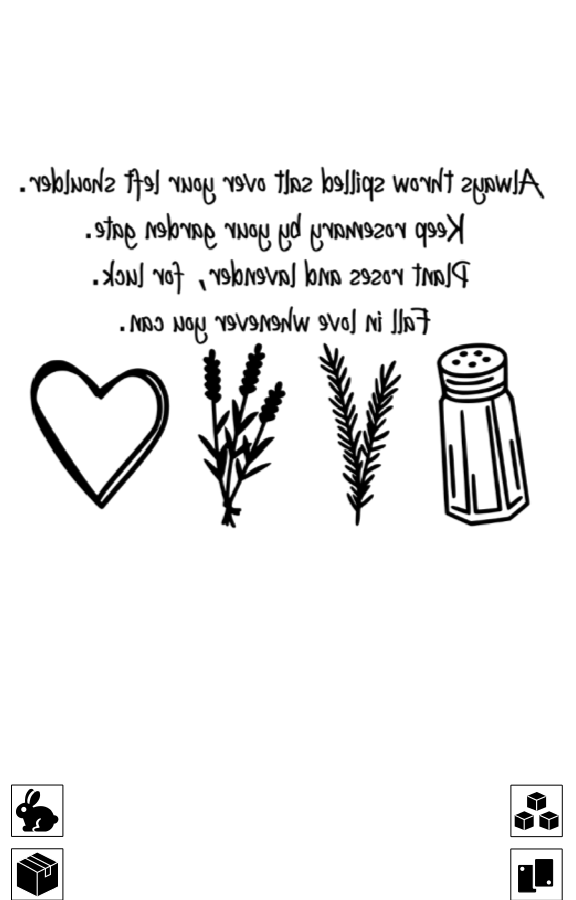 Always throw spilled salt over your left shoulder.
Keep rosemary by your garden gate.
Plant roses and lavender, for luck.
Fall in love whenever you can.